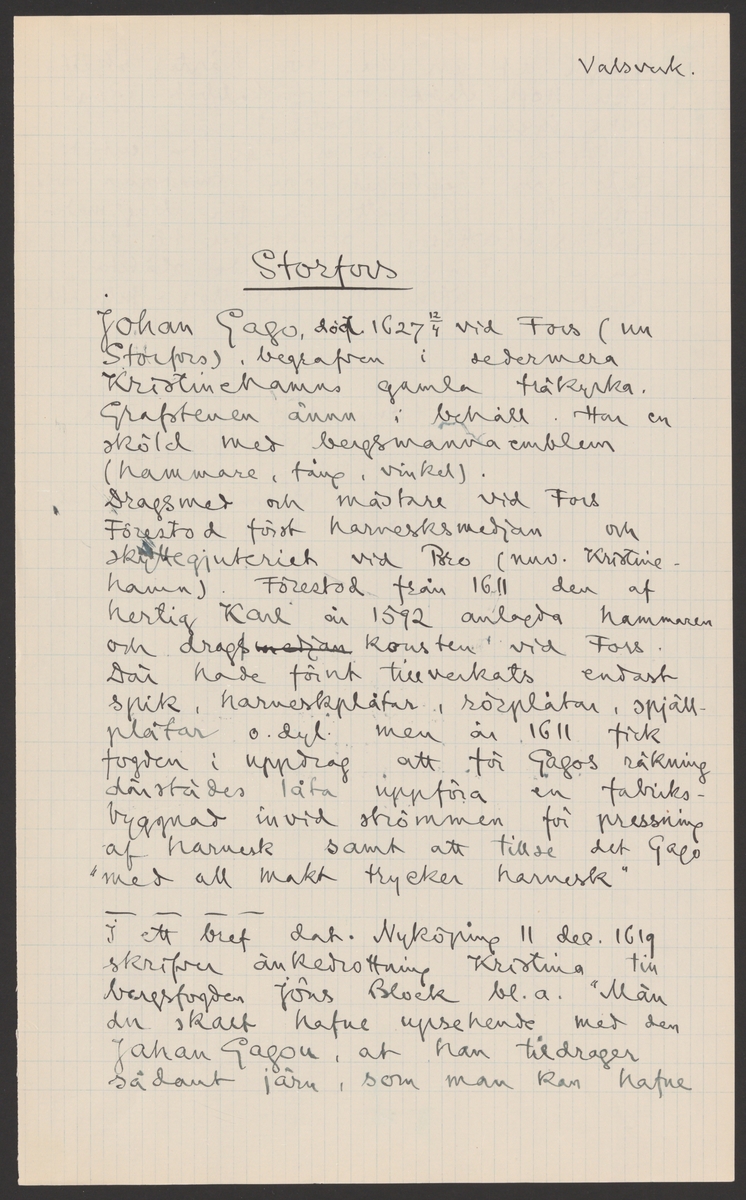 Valsverk.
Storfors
Johan Gago, död 1627 12/4 vid Fors (nu
Storfors), begrafven i sedermera
Kristinehamns gamla träkyrka.
Grafstenen ännu i behåll. Har en
sköld med bergsmannaemblem
(hammare, tång, vinkel).
Dragsmed och mästare vid Fors
Förestod först harnesksmedjan och
styckegjuteriet vid Bro (nuv. Kristine-
hamn). Förestod från 1611 den af
hertig Karl år 1592 anlagda hammaren
och "dragsmedjan konsten" vid Fors.
Där hade förut tillverkats endast
spik, harneskplåtar, rörplåtar, spjäll-
plåtar o. dyl. men år 1611 fick
fogden i uppdrag att för Gagos räkning
därstädes låta uppföra en fabriks-
byggnad invid strömmen för pressning
af harnesk samt att tillse det Gago
"med all makt trycker harnesk"
— — — —
I ett bref dat. Nyköping 11 dec. 1619
skrifver änkedrottning Kristina till
bergsfogden Jöns Block bl. a. "Män
du skalt hafne upseende med den
Jahan Gagou, at han tildrager
sådant järn, som man kan hafne